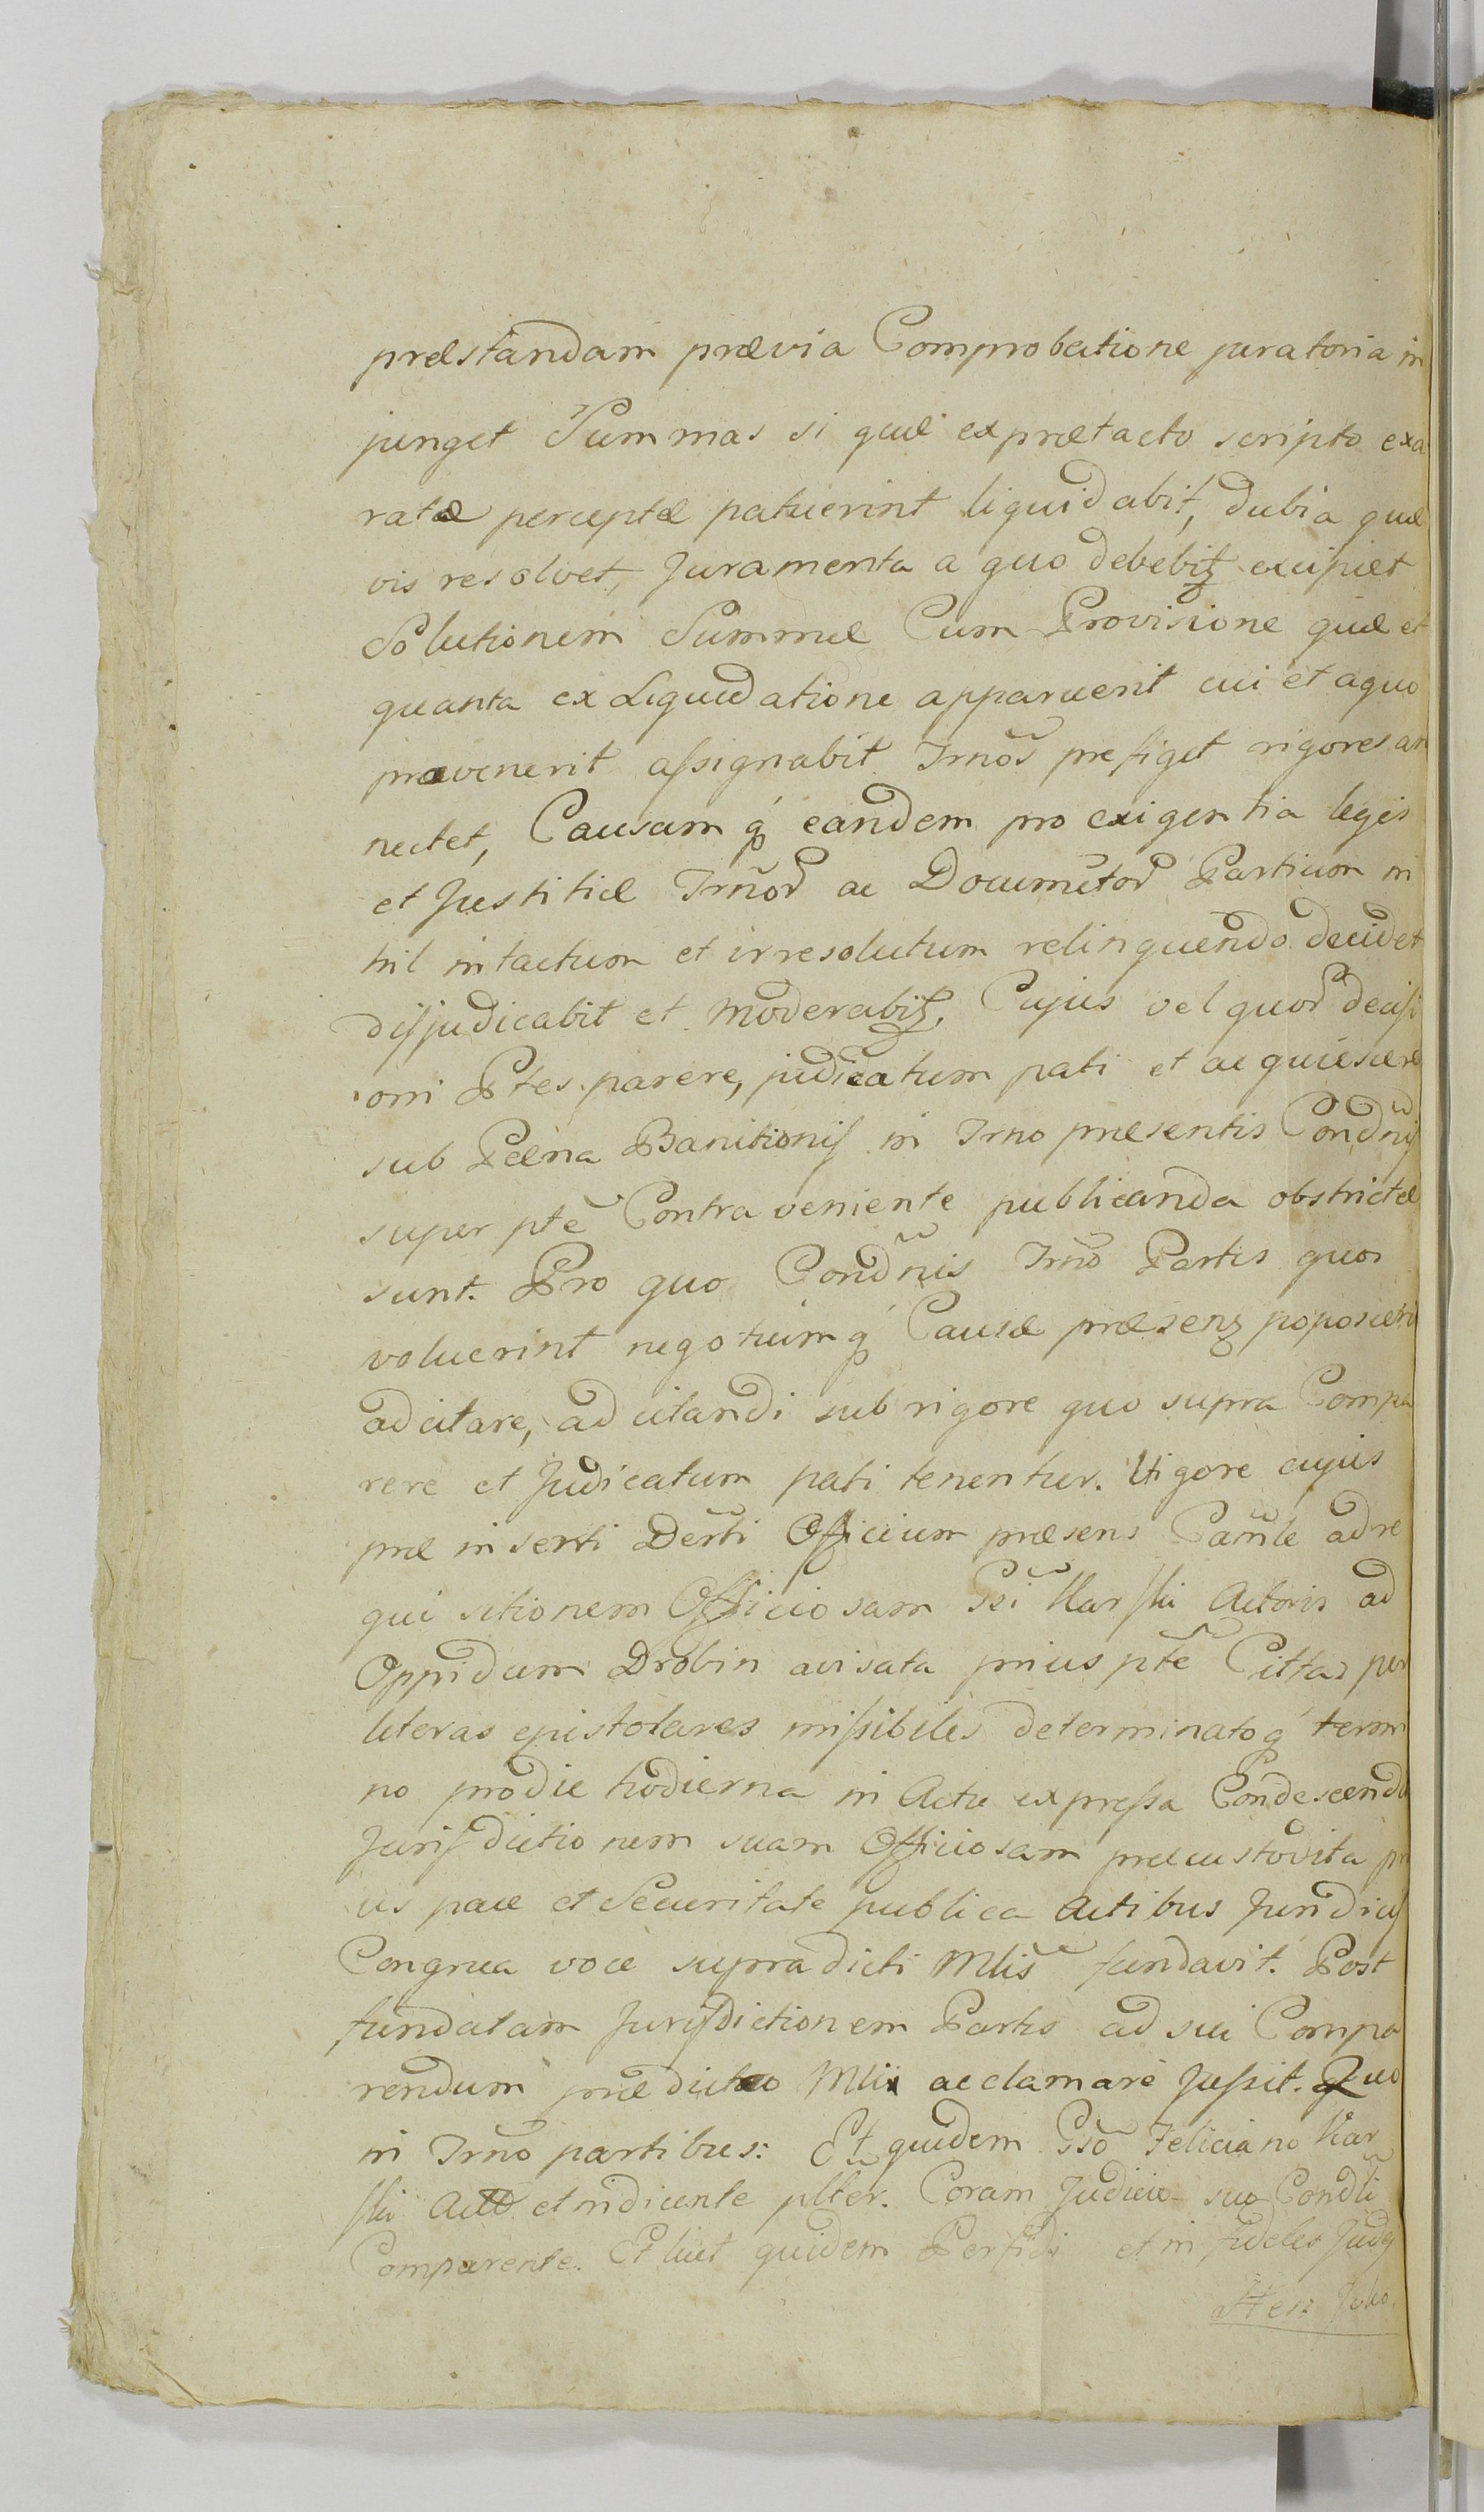 præstandam prævia Comprobatione juratoria in
junget Summas si quæ ex prætacto scripto exa
ratæ perceptæ patuerint liquidabit, dubia quæ
vis resolvet, Juramenta a quo debebitz excipiet
Solutionem Summæ Cum Provisione quæ et
quanta ex Liquidatione apparuerit cui et a quo
prævenerit assignabit Trños prefiget rigores an
nectet, Causam q́ eandem pro exigentia legis
et Justitiæ Trñor ac Documẽtor Partium ni
hil intactum et irresolutum relinquendo decidet
disjudicabit et moderabitz. Cujus vel quor decisi
oni Ptes parere, judicatum pati et acquiescere
sub Pæna Banitionis in Trno præsentis Condñis
super pte Contraveniente publicanda obstrictæ
sunt. Pro quo Condñis Trño Partes quos
voluerint negotiumq́ Causæ præsenz poposcerit
adcitare, adcitandi sub rigore quo supra Compa
rere et Judicatum pati tenentur. Vigore cujus
præinserti Dẽrti Officium præsens Cam̃le ad re
quisitionem Officiosam Gsi Karski Actoris ad
Oppidum Drobin avisata prius pte Citta per
literas epistolares missibiles determinatoq́ termi
no pro die hodierna in Actu expressa Condescendit
Jurisdictionem suam Officiosam præcustodita pri
us pace et Securitate publica Actibus Juridicis
Congrua voce supradicti Mlis fundavit. Post
fundatam Jurisdictionem Partes ad sui Compa
rendum prædicto Mli acclamare Jussit. Quo
in Trño partibus: Et quidem Gso Feliciano Kar
ski Act et indicente plter. Coram Judicio suo Condli
Comparente. Et licet quidem Perfidi et infideles Judęi